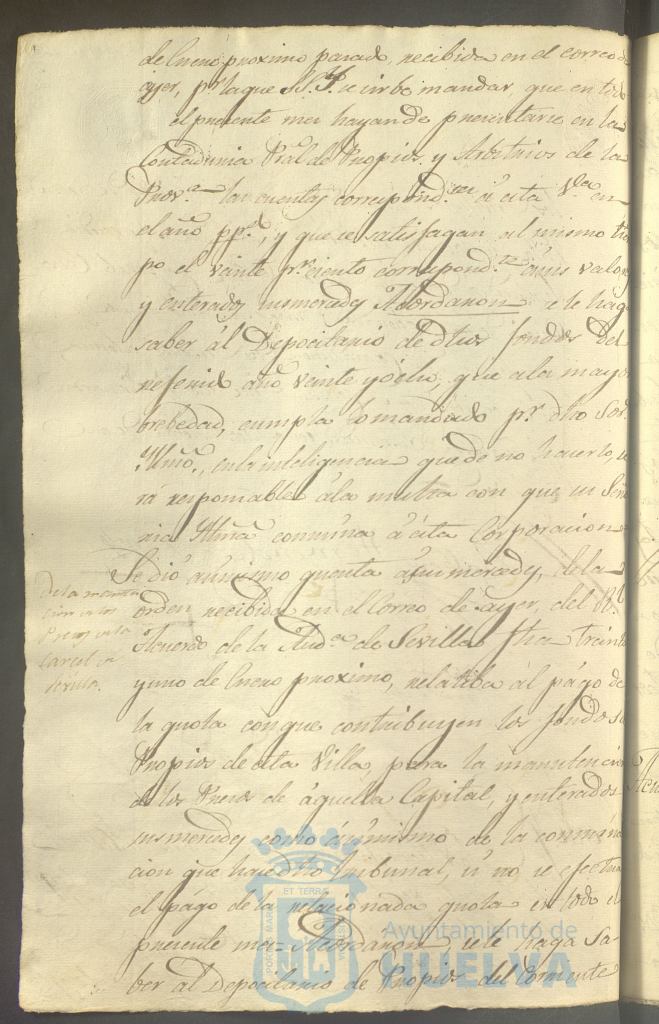 de Enero proximo pasado, recibida en el correo de
ayer, pr. la que S.S.Y. se sirbe mandar, que en todo
el presente mes hayan de presentarse en la
Contaduria Pral. de Propios y Arbitrios de la
Prova. las cuentas correspond.tes á esta Va. en
el año pp.do, y que se satisfagan al mismo tiem
po el veinte pr. ciento correspond.te á sus valores
y enterados sus mercedes Acordaron se le haga
saber ál Depocitario de dhos fondos del
referido año veinte y ócho, que a la mayor
brebedad, cumpla lo mandado pr. dho Sor.
Yllmo., en la inteligencia que de no hacerlo, se
rá responsable á la multa con que su Seño
ria Yllma. comúna á ésta Corporacion
De la manuten
cion a los
Presos en la
Carcel de
Sevilla.
Se dió asimismo quenta á sus mercedes, de la
orden recibida en el Correo de ayer, del Rl.
Acuerdo de la Auda. de Sevilla fha treinta
y uno de Enero proximo, relatiba ál págo de
la quota con que contribuyen los fondos de
Propios de esta Villa para la manutencion
de los Presos de áquella Capital, y enterados
sus mercedes como ásimismo de la conmina
cion que hace dho tribunal, si no se efectua
el págo de la relacionada quota en todo el
presente mes: Acordaron, se le haga sa
ber al Depocitario de Propios del Corriente
PORTUS MARIS
ET TERRAE
CUSTODIA
Ayuntamiento de
HUELVA